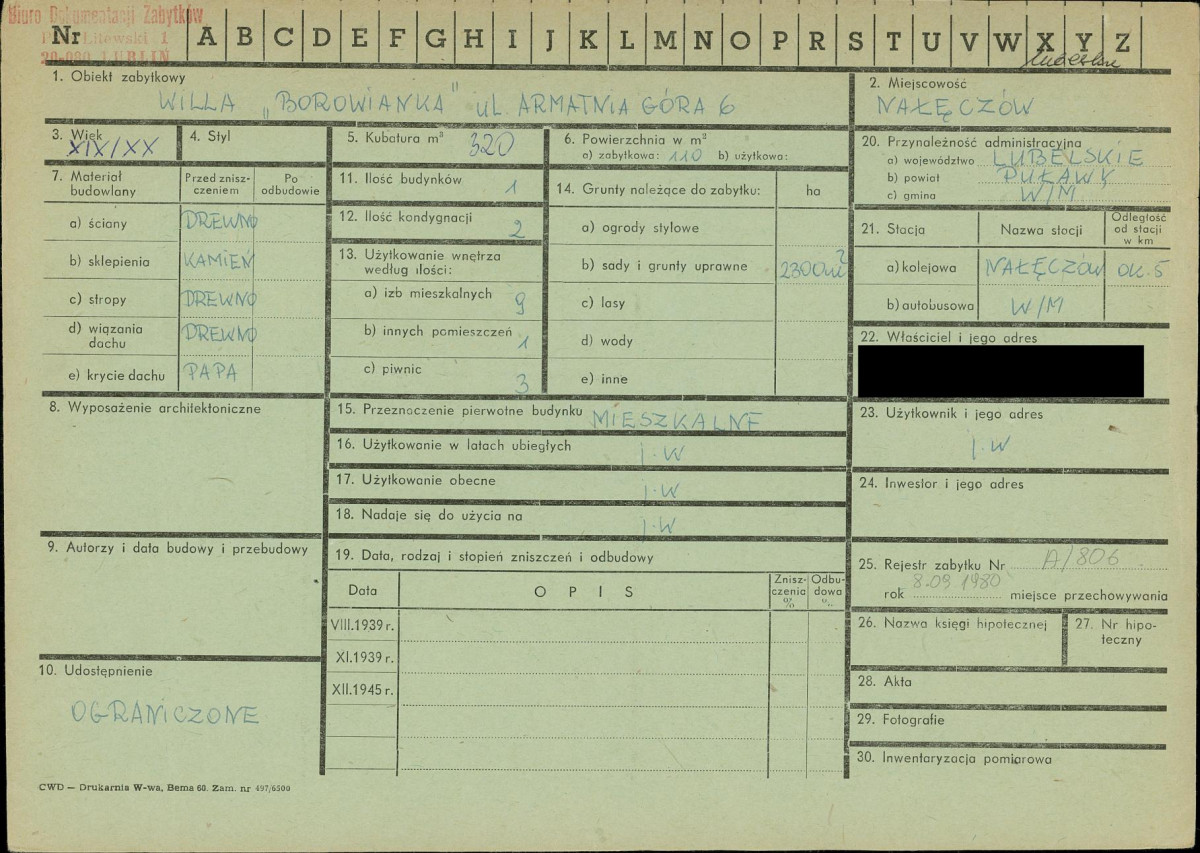 Biuro Dokumentacji Zabytków
Litewski 1
20-080 LUBLIN
Nr A B C D E F G H I J K L M N O P R S T U V W X Y Z
1. Obiekt zabytkowy
WILLA „BOROWIANKA" ul. ARMATNIA GÓRA 6
2. Miejscowość
NAŁĘCZÓW
3. Wiek
XIX/XX
4. Styl
5. Kubatura m³ 320
6. Powierzchnia w m²
a) zabytkowa: 110 b) użytkowa:
20. Przynależność administracyjna
a) województwo LUBELSKIE
b) powiat PUŁAWY
c) gmina W/M
7. Materiał budowlany
Przed zniszczeniem
Po odbudowie
a) ściany DREWNO
b) sklepienia KAMIEŃ
c) stropy DREWNO
d) wiązania dachu DREWNO
e) krycie dachu PAPA
11. Ilość budynków 1
12. Ilość kondygnacji 2
13. Użytkowanie wnętrza według ilości:
a) izb mieszkalnych 9
b) innych pomieszczeń 1
c) piwnic 3
14. Grunty należące do zabytku: ha
a) ogrody stylowe
b) sady i grunty uprawne 2300m²
c) lasy
d) wody
e) inne
21. Stacja
Nazwa stacji
Odległość od stacji w km
a) kolejowa NAŁĘCZÓW ok. 5
b) autobusowa W/M
22. Właściciel i jego adres
8. Wyposażenie architektoniczne
15. Przeznaczenie pierwotne budynku MIESZKALNE
16. Użytkowanie w latach ubiegłych J.W
17. Użytkowanie obecne J.W
18. Nadaje się do użycia na J.W
23. Użytkownik i jego adres
J.W
24. Inwestor i jego adres
9. Autorzy i data budowy i przebudowy
19. Data, rodzaj i stopień zniszczeń i odbudowy
Data
O P I S
Zniszczenia %
Odbudowa %
VIII.1939 r.
XI.1939 r.
XII.1945 r.
25. Rejestr zabytku Nr A/806
rok 8.03 1980 miejsce przechowywania
26. Nazwa księgi hipotecznej
27. Nr hipoteczny
10. Udostępnienie
OGRANICZONE
28. Akta
29. Fotografie
30. Inwentaryzacja pomiarowa
CWD — Drukarnia W-wa, Bema 60. Zam. nr 497/6500